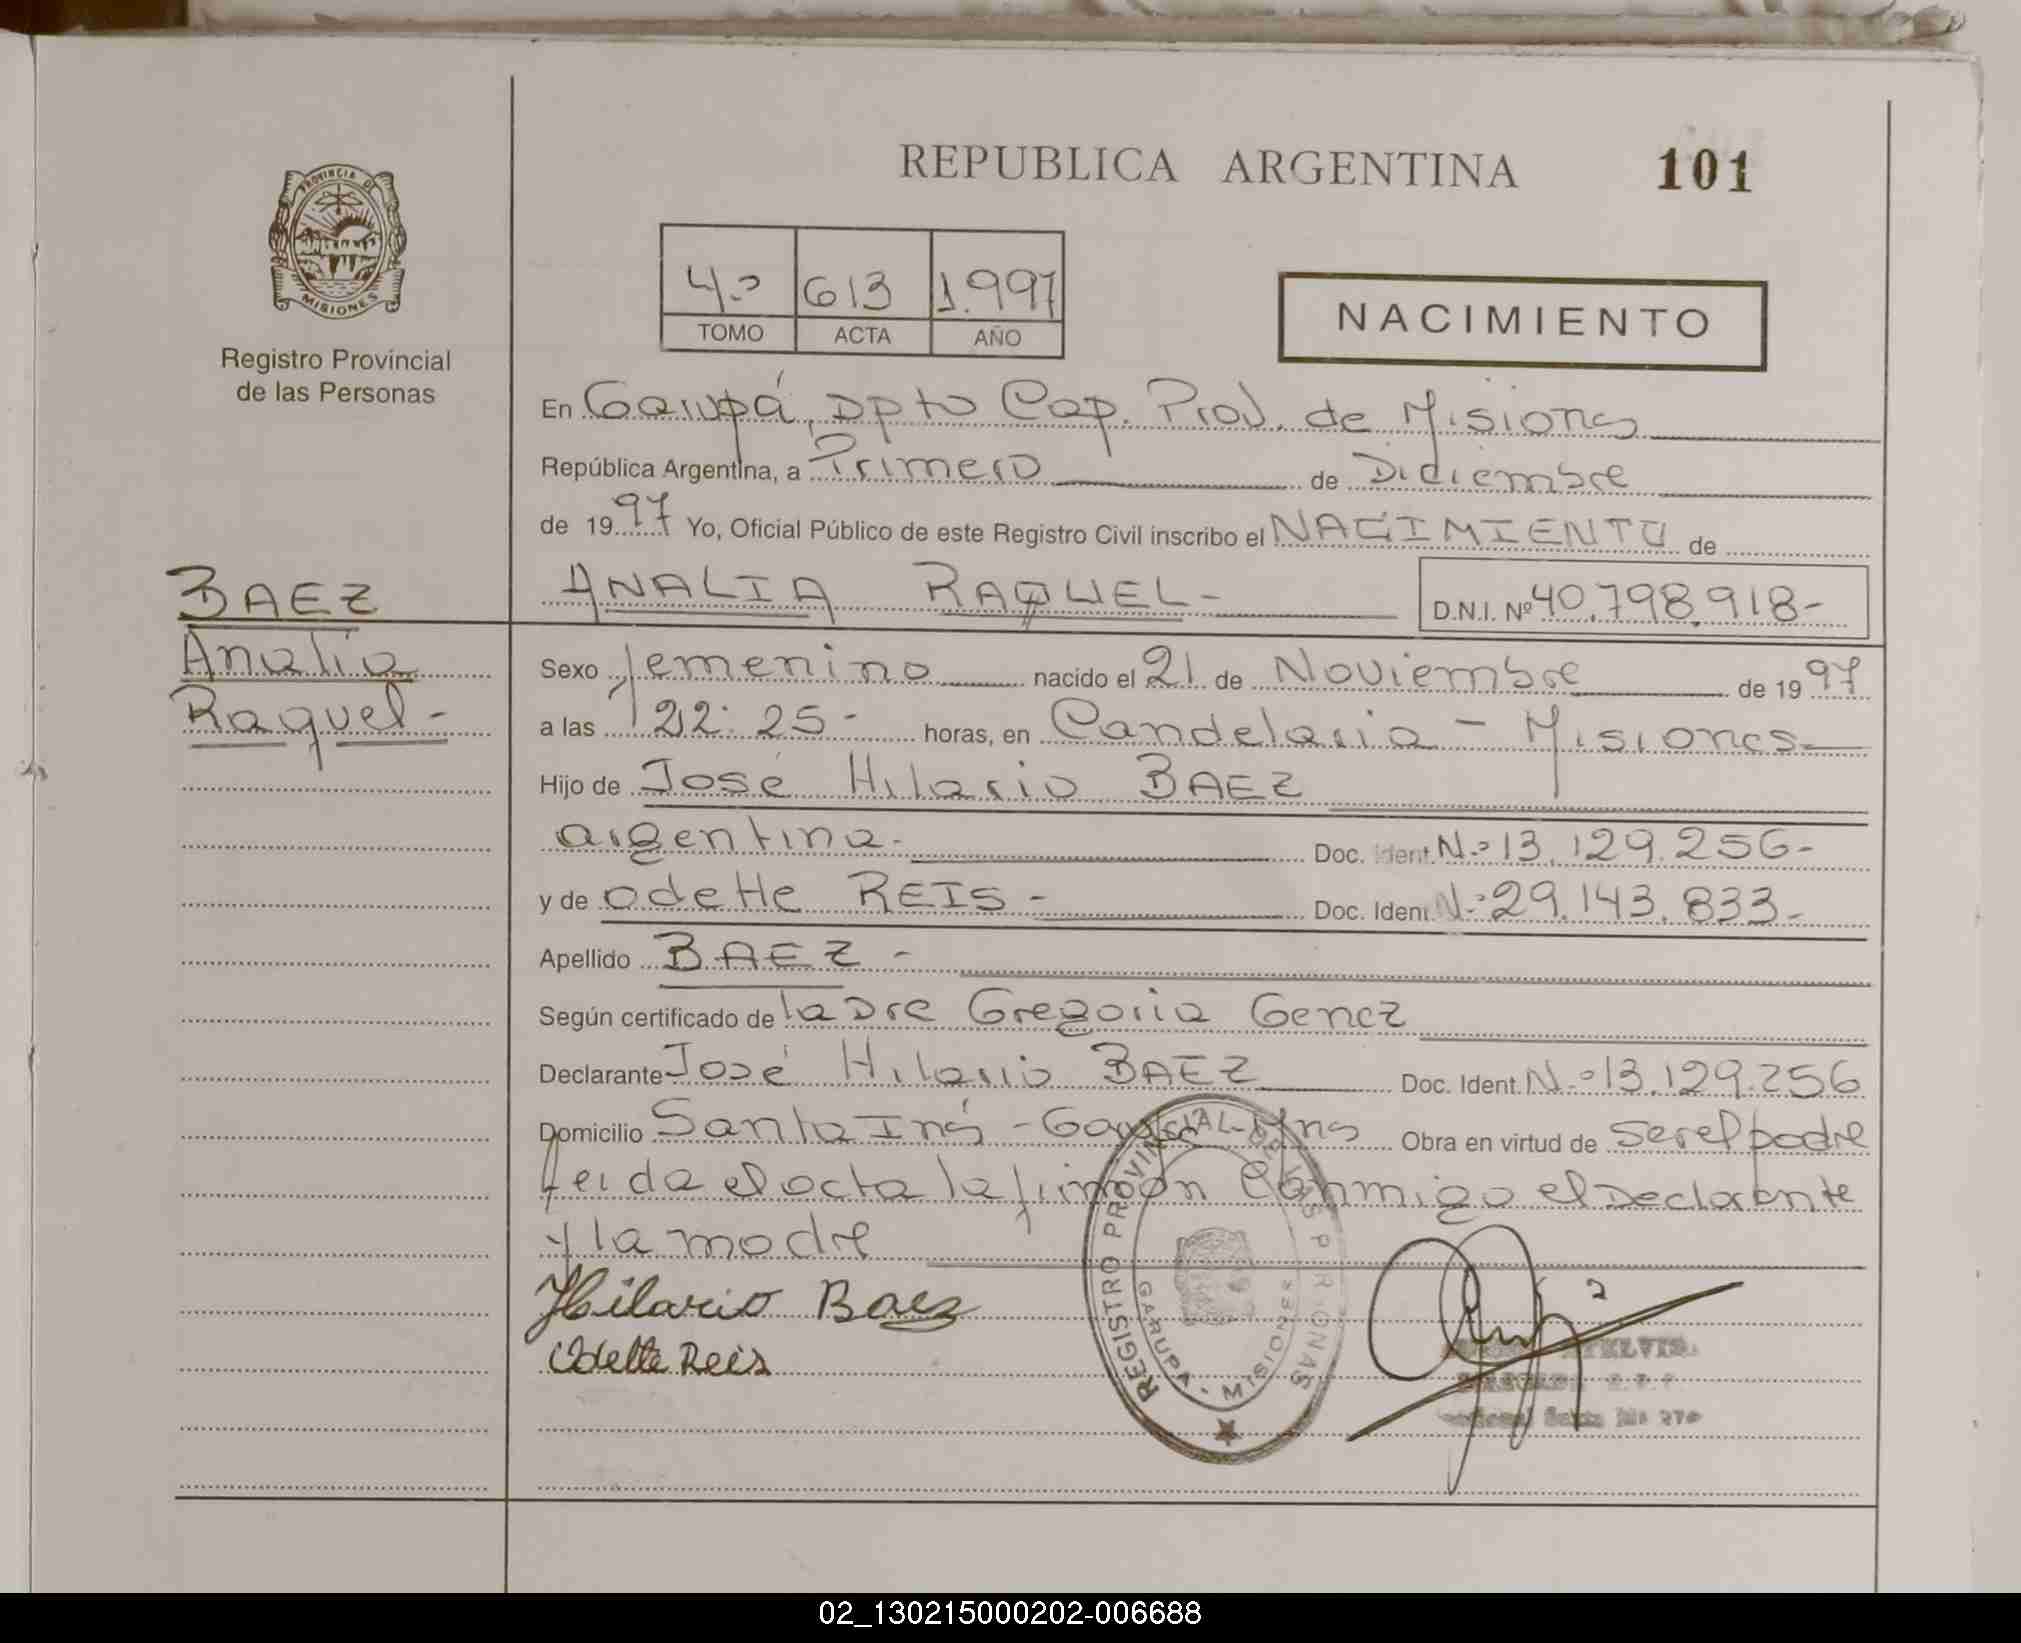 REPUBLICA ARGENTINA 101
PROVINCIA DE
MISIONES
Registro Provincial
de las Personas
4.º 613 1.997
TOMO ACTA AÑO
NACIMIENTO
En Garupá, Dpto Cap. Prov. de Misiones
República Argentina, a Primero de Diciembre
de 1997 Yo, Oficial Público de este Registro Civil inscribo el NACIMIENTO de
BAEZ
Analía
Raquel -
ANALIA RAQUEL - D.N.I. Nº 40.798.918-
Sexo femenino nacido el 21 de Noviembre de 1997
a las 22:25- horas, en Candelaria - Misiones
Hijo de José Hilario BAEZ
argentina- Doc. Ident. N.º 13.129.256-
y de Odette REIS - Doc. Ident. N.º 29.143.833-
Apellido BAEZ -
Según certificado de la Dre Gregoria
Declarante José Hilario BAEZ Doc. Ident. N.º 13.129.256
Domicilio Santa Inés - Garupá - Mns Obra en virtud de ser el padre
Leida el acta la firman conmigo el Declarante
y la madre
Hilario Baez
Odette Reis
REGISTRO PROVINCIAL DE LAS PERSONAS
GARUPA - MISIONES
02_130215000202-006688